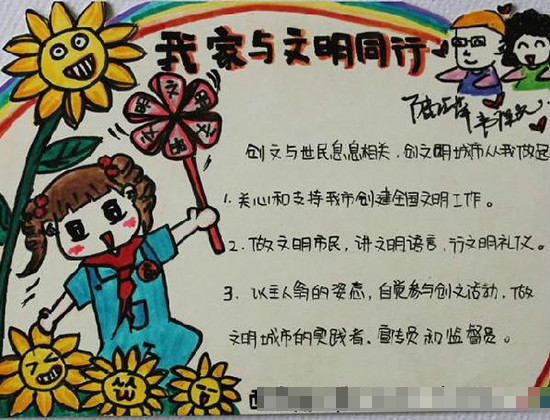 我家与文明同行
创文与世民息息相关，创文明城市从我做起
1. 关心和支持我市创建全国文明工作。
2. 做文明市民，讲文明语言，行文明礼仪。
3. 以主人翁的姿态，自觉参与创文活动，做
文明城市的实践者、宣传员和监督员。